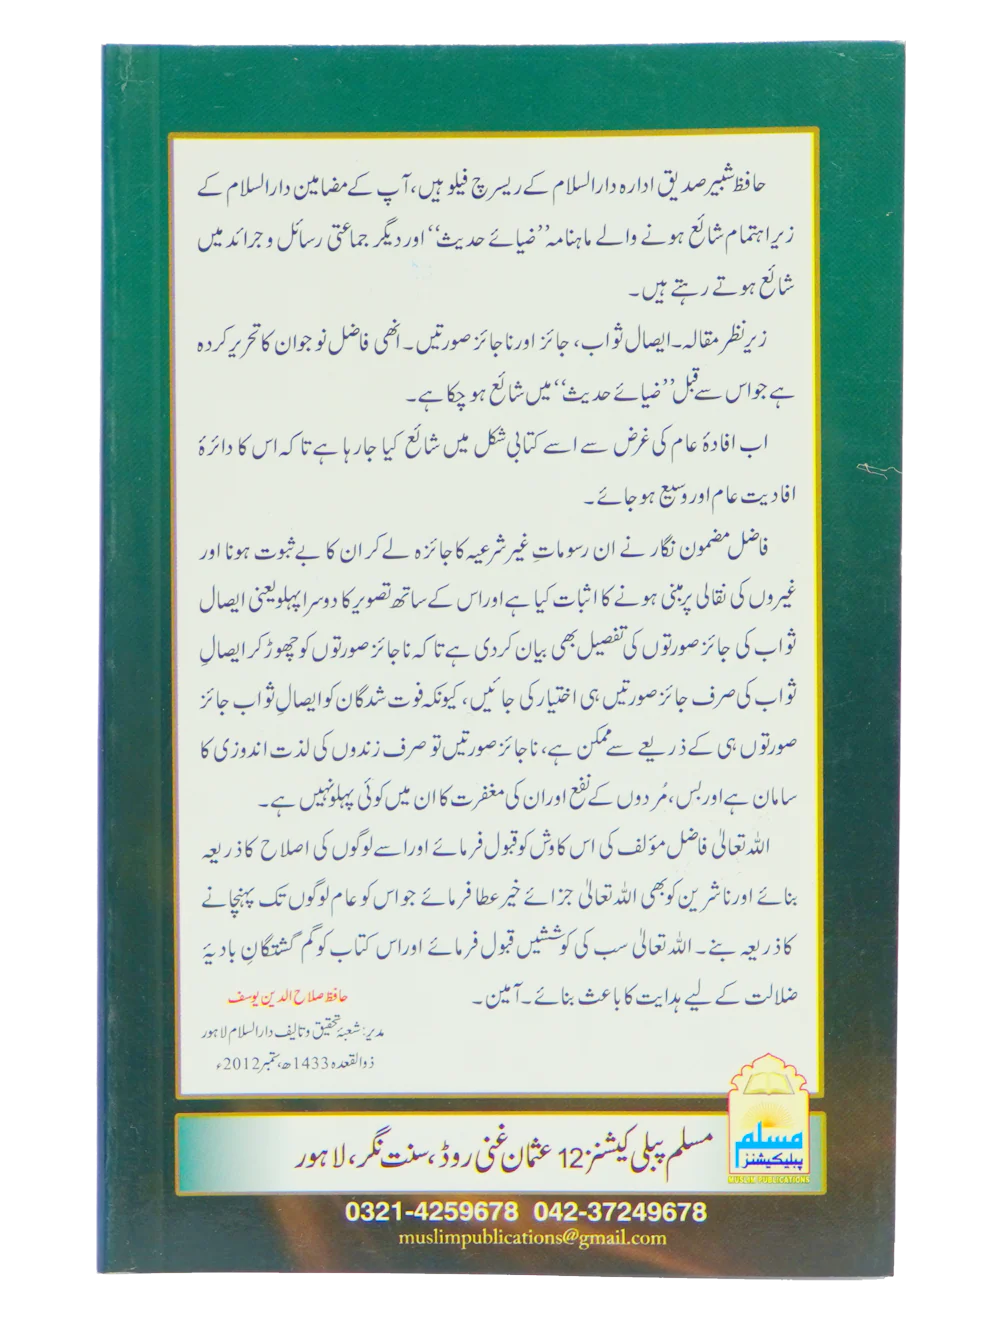 حافظ شبیر صدیق ادارہ دارالسلام کے ریسرچ فیلو ہیں، آپ کے مضامین دارالسلام کے
زیرِ اہتمام شائع ہونے والے ماہنامہ ’’ضیائے حدیث‘‘ اور دیگر جماعتی رسائل و جرائد میں
شائع ہوتے رہتے ہیں۔
زیر نظر مقالہ۔ ایصال ثواب، جائز اور ناجائز صورتیں۔ انھی فاضل نوجوان کا تحریر کردہ
ہے جو اس سے قبل ’’ضیائے حدیث‘‘ میں شائع ہو چکا ہے۔
اب افادۂ عام کی غرض سے اسے کتابی شکل میں شائع کیا جا رہا ہے تاکہ اس کا دائرۂ
افادیت عام اور وسیع ہو جائے۔
فاضل مضمون نگار نے ان رسوماتِ غیر شرعیہ کا جائزہ لے کر ان کا بے ثبوت ہونا اور
غیروں کی نقالی پر مبنی ہونے کا اثبات کیا ہے اور اس کے ساتھ تصویر کا دوسرا پہلو یعنی ایصال
ثواب کی جائز صورتوں کی تفصیل بھی بیان کر دی ہے تاکہ ناجائز صورتوں کو چھوڑ کر ایصالِ
ثواب کی صرف جائز صورتیں ہی اختیار کی جائیں، کیونکہ فوت شدگان کو ایصالِ ثواب جائز
صورتوں ہی کے ذریعے سے ممکن ہے، ناجائز صورتیں تو صرف زندوں کی لذت اندوزی کا
سامان ہے اور بس، مُردوں کے نفع اور ان کی مغفرت کا ان میں کوئی پہلو نہیں ہے۔
اللہ تعالیٰ فاضل مؤلف کی اس کاوش کو قبول فرمائے اور اسے لوگوں کی اصلاح کا ذریعہ
بنائے اور ناشرین کو بھی اللہ تعالیٰ جزائے خیر عطا فرمائے جو اس کو عام لوگوں تک پہنچانے
کا ذریعہ بنے۔ اللہ تعالیٰ سب کی کوششیں قبول فرمائے اور اس کتاب کو گم گشتگانِ بادیۂ
ضلالت کے لیے ہدایت کا باعث بنائے۔ آمین۔
حافظ صلاح الدین یوسف
مدیر: شعبۂ تحقیق و تالیف دارالسلام لاہور
ذوالقعدہ 1433ھ، ستمبر 2012ء
مسلم پبلی کیشنز 12 عثمان غنی روڈ، سنت نگر، لاہور
مسلم
پبلیکیشنز
MUSLIM PUBLICATIONS
0321-4259678 042-37249678
muslimpublications@gmail.com